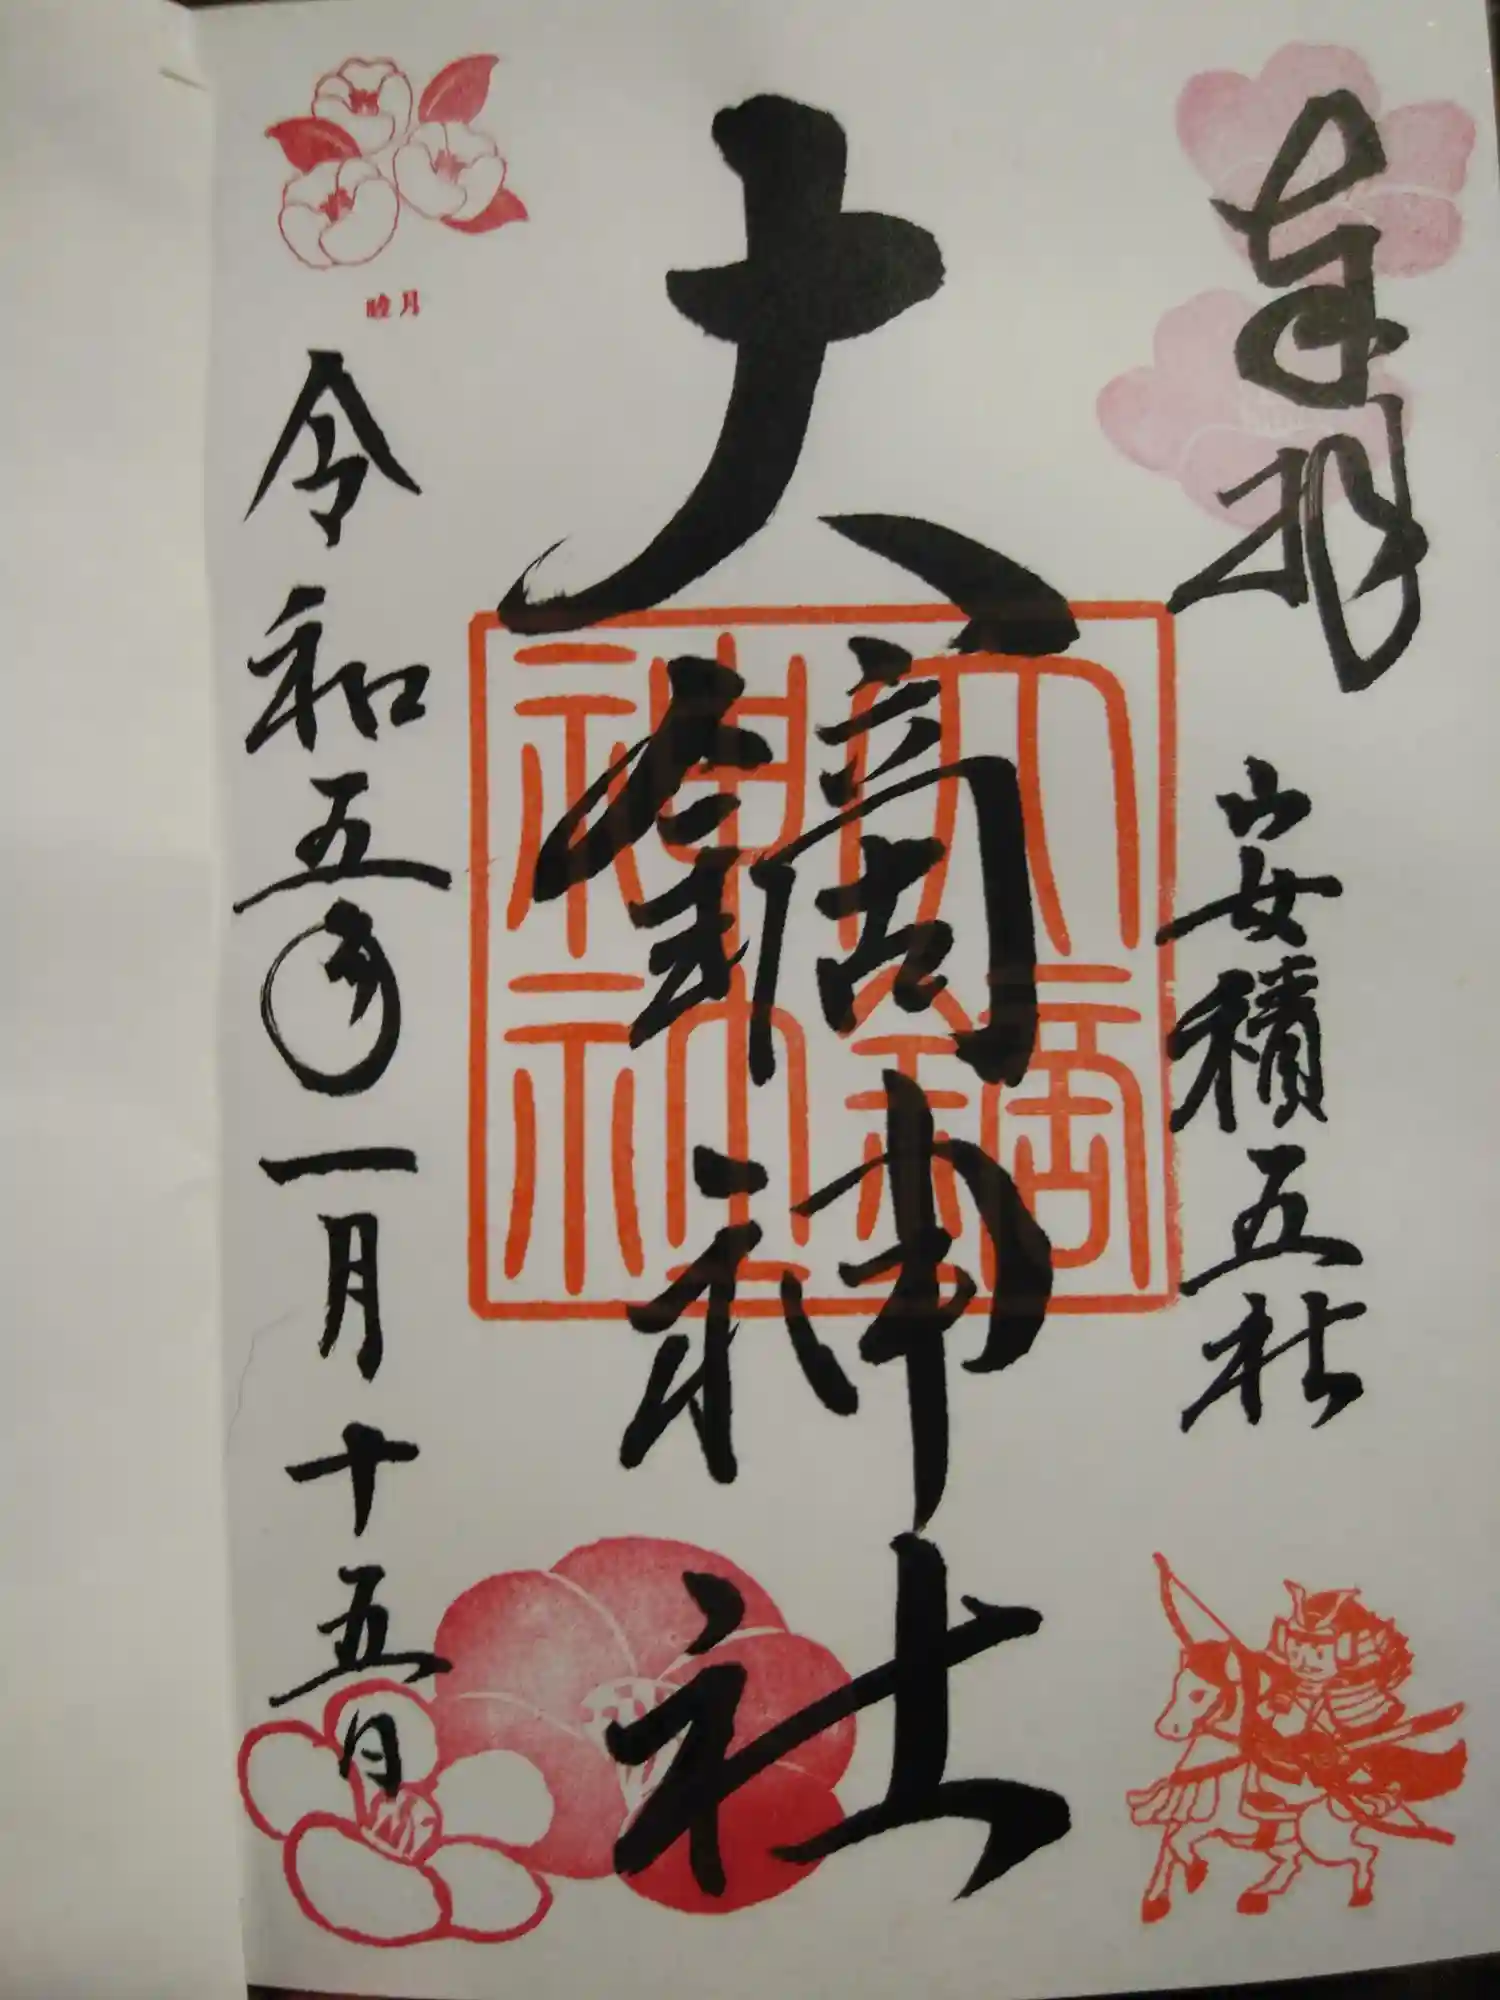 奉拝
安積五社
大鏑神社
大鏑
神社
睦月
令和五年一月十五日